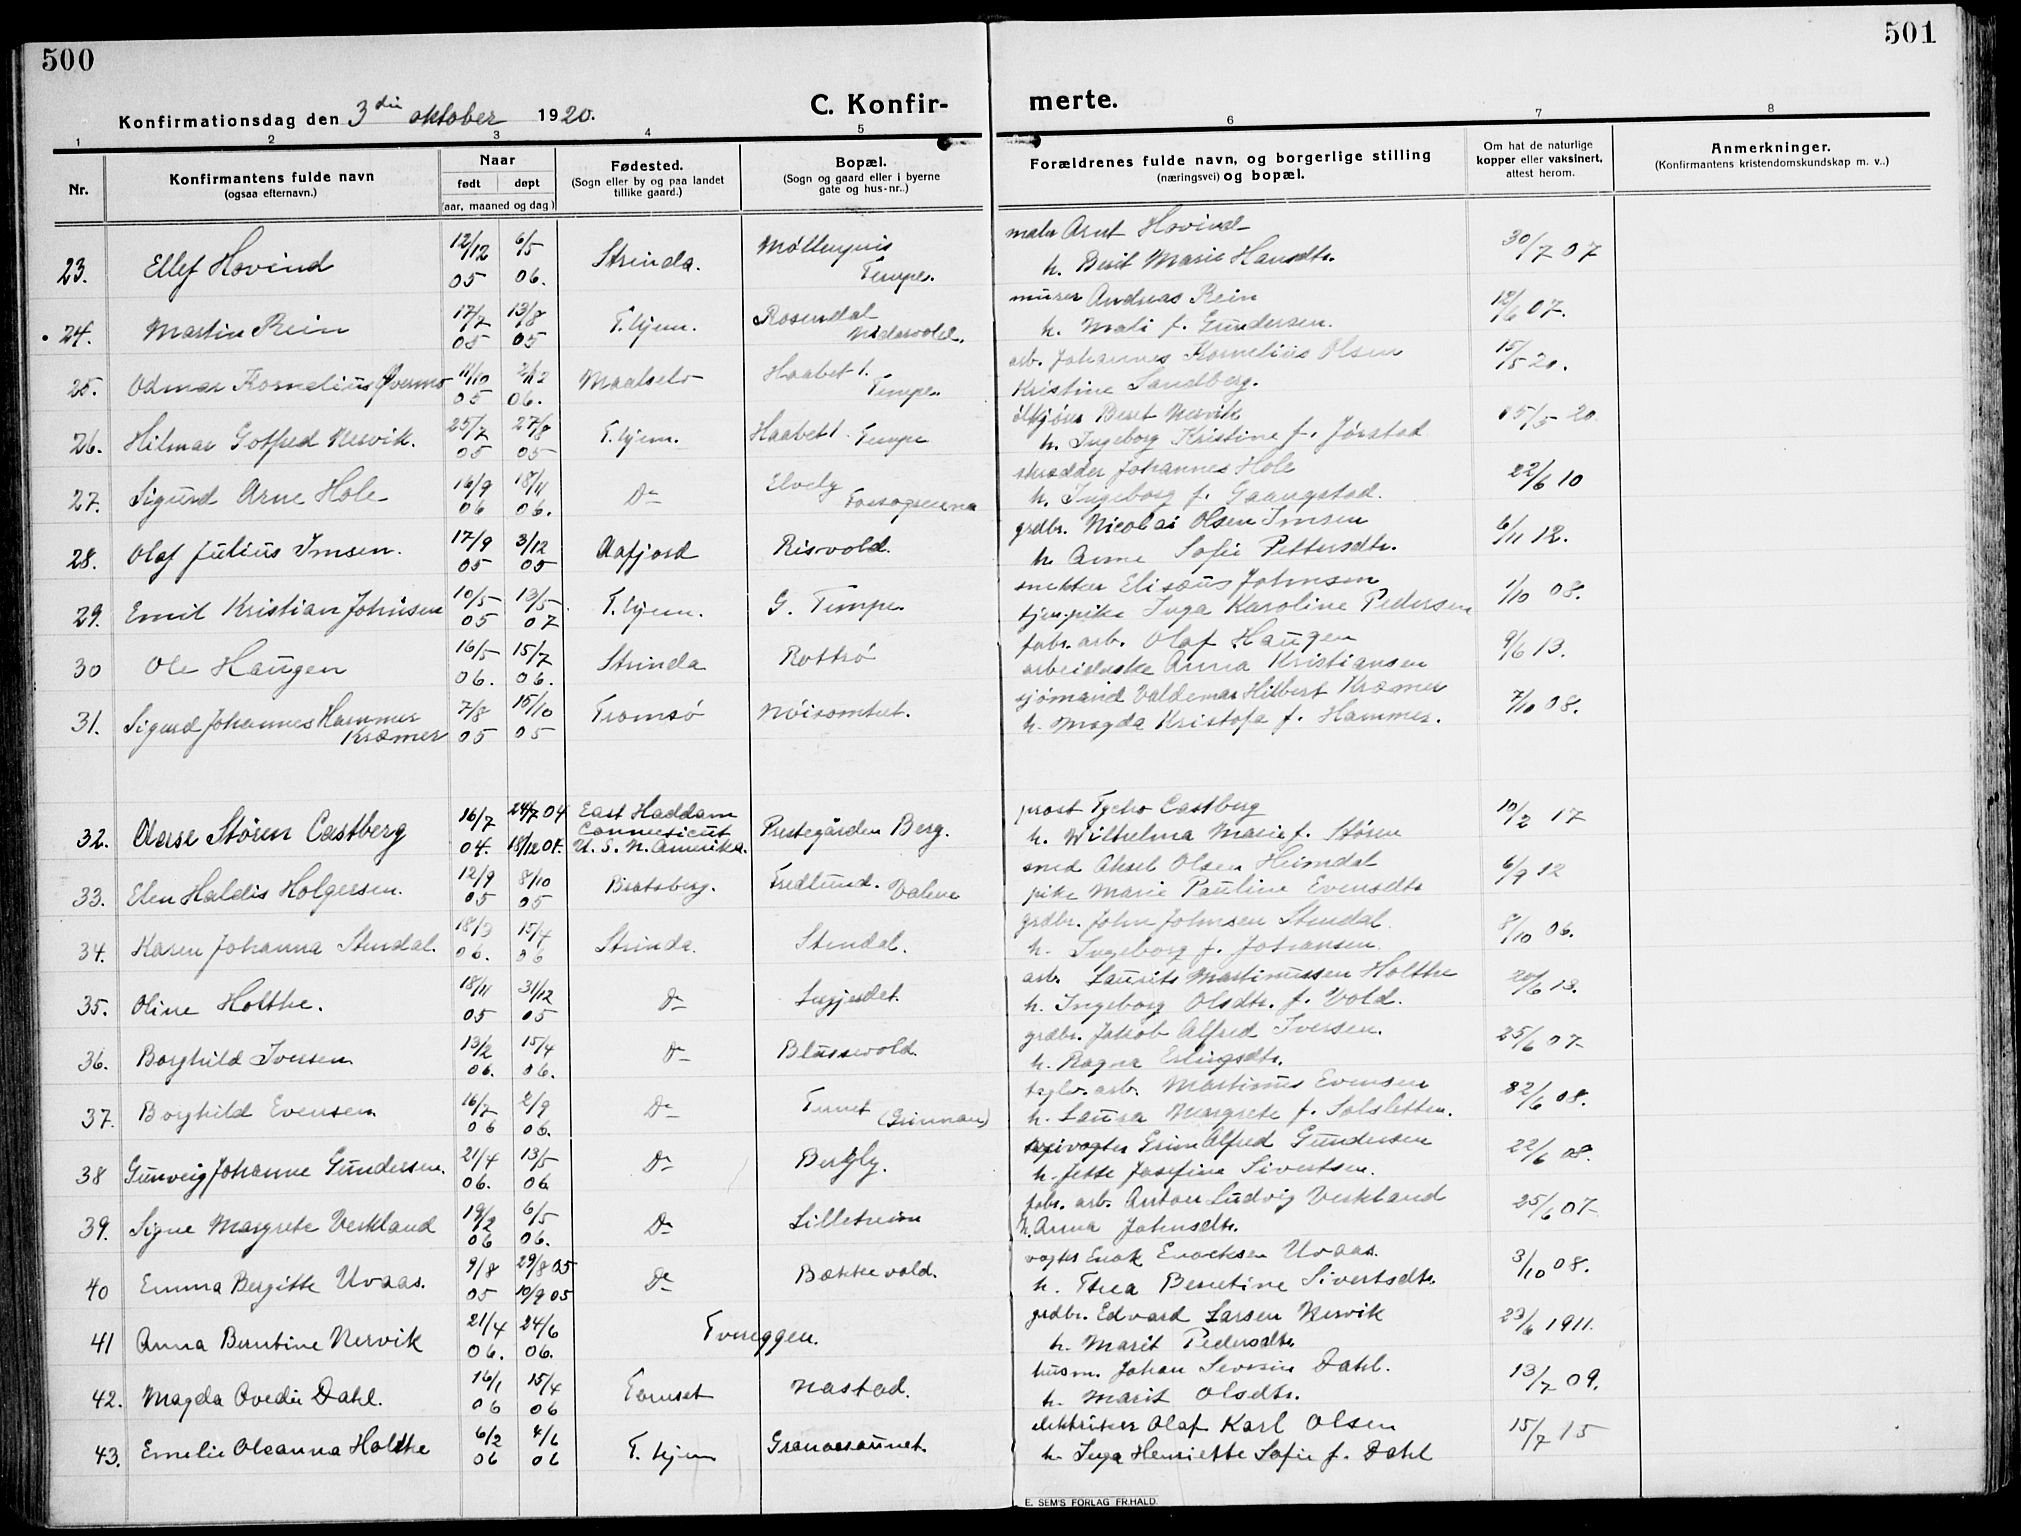 500
501
Konfirmationsdag den 3die oktober 1920.
C. Konfir-
merte.
1 2 3 4 5 6 7 8
Nr.
Konfirmantens fulde navn
(ogsaa efternavn.)
Naar
født døpt
(aar, maaned og dag)
Fødested.
(Sogn eller by og paa landet
tillike gaard.)
Bopæl.
(Sogn og gaard eller i byerne
gate og hus-nr.)
Forældrenes fulde navn, og borgerlige stilling
(næringsvei) og bopæl.
Om hat de naturlige
kopper eller vaksinert,
attest herom.
Anmerkninger.
(Konfirmantens kristendomskundskap m. v..)
23. Ellef Hovind 12/12 05 6/5 06. Strinda. Møllenpris Tempe.
maler Arnt Hovind
h. Berit Marie Hansdtr. 30/7 07
24. Martin Rein 17/7 05 13/8 05 T.hjem. Rosendal Nidarvold.
murer Andreas Rein
h. Mali f. Gundersen. 12/6 07.
25. Odmar Kornelius Øvermo 11/10 05 2/12 06. Maalselv Haabet 1. Tempe.
arb. Johannes Kornelius Olsen
Kristine Sandberg. 15/5 20.
26. Hilmar Gotfred Nervik. 25/7 05 27/8 05 T.hjem. Haabet 1. Tempe
Beret Nervik
h. Ingeborg Kristine f. Jørstad 15/5 20
27. Sigurd Arne Hole 16/9 06 18/11 06. Do Elvely
skrædder Johannes Hole
h. Ingeborg f. Gaangstad. 22/6 10
28. Olaf Julius Imsen. 17/9 05 3/12 05 Aafjord Risvold.
grdbr. Nicolai Olsen Imsen
h. Anne Sofie Pettersdtr. 6/11 12.
29. Emil Kristian Johnsen 10/5 05 13/5 07 T.hjem. G. Tempe.
snekker Elisæus Johnsen
tjen.pike Inga Karoline Pedersen 1/10 08.
30 Ole Haugen 16/5 06. 15/7 06. Strinda Rotlrø
fabr. arb. Olaf Haugen
arbeiderske Anna Kristiansen 9/6 13.
31. Sigurd Johannes Hammer
Kræmer 7/8 05 15/10 05 Tromsø Nøisomhet.
sjømand Valdemar Hilbert Kræmer
h. Magda Kristofa f. Hammer. 7/10 08.
32. Aase Støren Castberg 16/7 04. 24/7 04 18/12 04. East Haddam
Connecticut
U. S. N. Amerika. Prestegården Berg.
prost Tycho Castberg
h. Wilhelma Marie f. Støren 10/2 17
33. Elen Haldis Holgersen. 12/9 05 8/10 05 Bratsberg. Fredlund. Valene
smed Aksel Olsen Heimdal
pike Marie Pauline Evensdtr 6/9 12
34. Karen Johanna Stendal. 18/9 06. 15/4 06 Strinda. Stendal.
grdbr. John Johnsen Stendal.
h. Ingeborg f. Johansen. 8/10 06.
35. Oline Holthe. 18/11 05 31/12 05 Do
arb. Laurits Martinussen Holthe
h. Ingeborg Olsdtr. f. Vold. 20/6 13.
36. Borghild Iversen 13/2 06. 15/4 06. Do Blussuvold.
grdbr. Jakob Alfred Iversen.
h. Ragna Erlingsdtr. 25/6 07
37. Borghild Evensen 16/7 06 2/9 06. Do Tunet (Grinnan)
teglv. arb. Martinus Evensen
h. Laura Margrete f. Solsletten. 22/6 08.
38 Gunveig Johanne Gundersen. 21/4 06. 13/5 06 Do Bergly.
Grim Alfred Gundersen
h. Jette Josefine Sivertsen. 22/6 08.
39. Signe Margrete Verkland 19/2 06 6/5 06. Do Lilleheim
fabr. arb. Anton Ludvig Verkland
h. Anna Johnsdtr. 25/6 07
40 Emma Bergitte Uvaas. 9/8 05 29/8 05 10/9 05 Do Bækkevold.
vogter Enok Enoksen Uvaas.
h. Thea Berntine Sivertsdtr. 3/10 08.
41 Anna Berntine Nervik 21/4 06. 24/6 06. Tvereggen.
grdbr. Edvard Larsen Nervik
h. Marit Pedersdtr. 23/6 1911.
42. Magda Ovedie Dahl. 16/1 06 15/4 06 Tømset Nastad.
husm. Johan Severin Dahl.
h. Marit Olsdtr. 13/7 09.
43. Emelie Oleanna Holthe 6/2 06 4/6 06 T.hjem Granaasaunet.
elektriker Olaf Karl Olsen
h. Inga Henriette Sofie f. Dahl 15/7 15
E. SEM'S FORLAG FR.HALD.